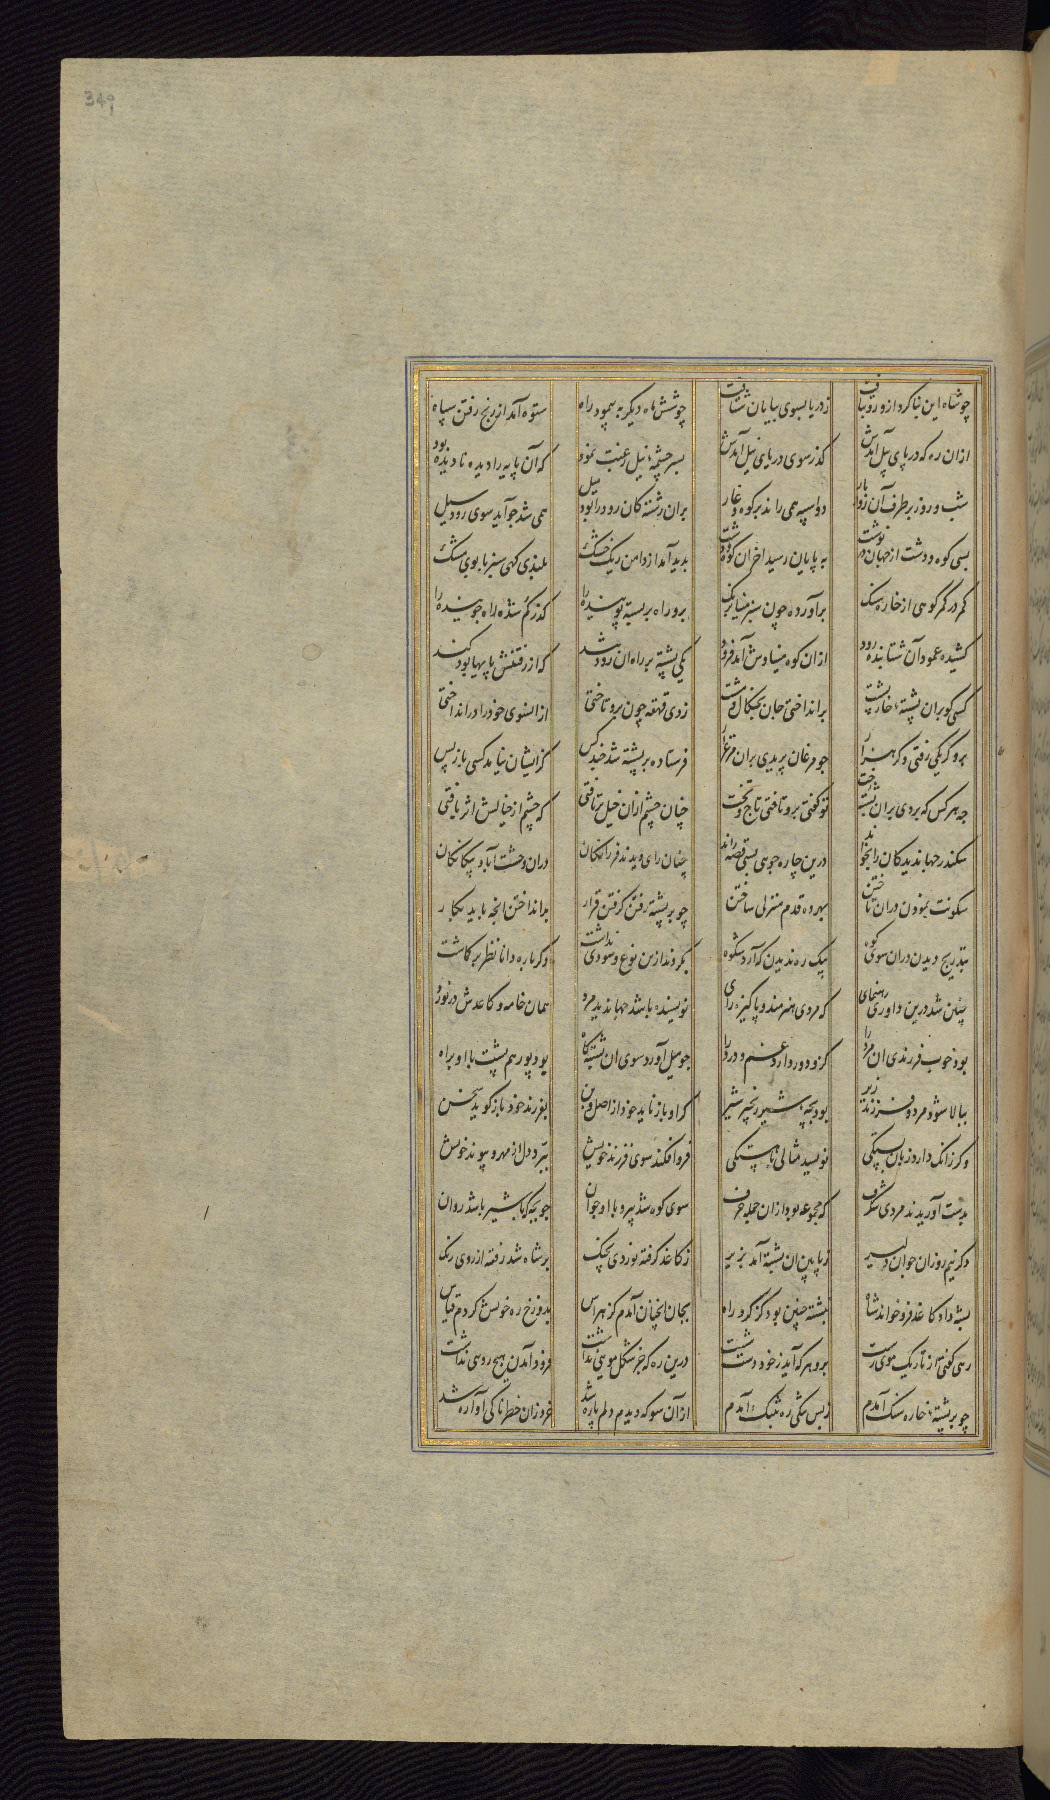 349
چو شاه این بنا کرد ازو رو بتافت ز دریا بسوی بیابان شتافت چو شش ماه دیگر به پیمود راه ستوه آمد از رنج رفتن سپاه
از ان ره که در پای پیل آمدش گذر سوی دریای نیل آمدش بسر چشمهٔ نیل رغبت نمود که آن پایه را دیده نادیده بود
شب و روز بر طرف آن رودبار دو اسپه همی راند بر کوه و غار بران رشته کان رود را بود میل همی شد چو آید سوی رود سیل
بسی کوه و دشت از جهان در نوشت به پایان رسید اخر ان کوه و دشت بدید آمد از دامن ریک خشک بلندی کهی سبز با بوی مشک
کمر در کمر کوهی از خاره سنک برآورده چون سبز مینا برنک برو راه بر بسته پوینده را گذر گم شده راه جوینده را
کشیده عمود آن شتابنده رود از ان کوه مینا وش آمد فرود یکی پشته بر راه ان رود بند که از رفتنش پایها بود کند
کسی کو بران پشتهٔ خار پشت برانداختی جان بچنکال و مشت زدی قهقهه چون برو تاختی از انسوی خود را در انداختی
برو گر یکی رفتی و گر هزار چو مرغان پریدی بران مرغزار فرستاده بر پشته شد چند کس کز ایشان نیامد کسی باز پس
چه هر کس که بردی بران پشته رخت تو گفتی برو تافتی تاج و تخت چنان چشم ازان خیل برتافتی که چشم از خیالش اثر یافتی
سکندر جهاندیدکان را بخواند درین چاره جوی بسی قصه راند چنان رای دیدند فرزانکان دران وحشت آباد بیکانکان
سکونت نمودن دران تاختن بهر ده قدم منزلی ساختن چو بر پشته رفتن گرفتن قرار برانداختن انچه باید بکار
بتدریج دیدن دران سوی کوه بیک ره ندیدن که آرد شکوه بکردند ازین نوع و سودی نداشت و گر باره دانا نظر بر گماشت
چنین شد درین داوری رهنمای که مردی هنرمند و پاکیزه رای نویسنده باشد جهاندیده مرد همان خامه و کاغدش در نورد
بود خوب فرزندی ان مرد را کزو دور دارد غم و درد را چو میل آورد سوی ان پشته کاه بود پور هم پشت با او براه
ببالا شود مرد و فرزند زیر بود بچهٔ شیر زنجیر شیر گر او باز ناید خود از اصل و بن بفرزند خود باز گوید سخن
و گر زانک دارد زبان بستگی نویسد مثالی باهستگی فرو افکند سوی فرزند خویش نبرد دل از مهر و پیوند خویش
بدست آوریدند مردی شکرف که مجموعه بود ازان جمله حرف سوی کوه شد پیرو با او جوان چو بچه که با شیر باشد روان
و گر نیم روز ان جوان دلیر ز پایین ان پشته آمد بزیر ز کاغد گرفته نوردی بچنک بر شاه شد رفته از روی رنک
بشه داد کاغد فرو خواند شاه نبشته چنین بود کز گرد راه بجان انچنان آمدم کز هراس بدوزخ ره خویش کردم قیاس
رهی گفتی از تاریک موی رست برو هر که آید ز خود دست شست درین ره که جز شکل مویی نداشت فرود آمدن هیچ روی نداشت
چو بر پشتهٔ خاره سنک آمدم ز بس تنگی ره بتنک آمدم از آن سو که دیدم دلم پاره شد خرد زان خطرناکی آواره شد